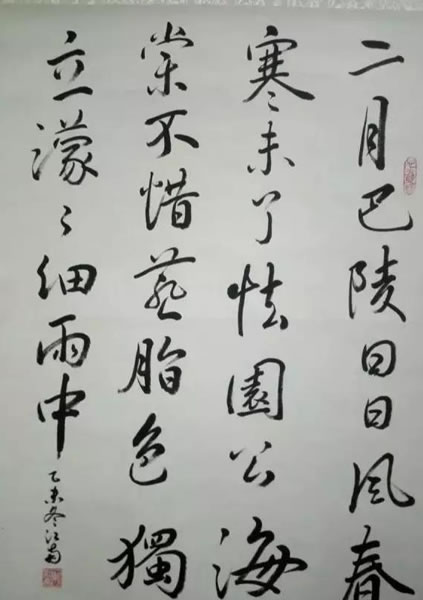 二月巴陵日日风春
寒未了怯園公海
棠不惜胭脂色獨
立濛々细雨中
乙未冬江南